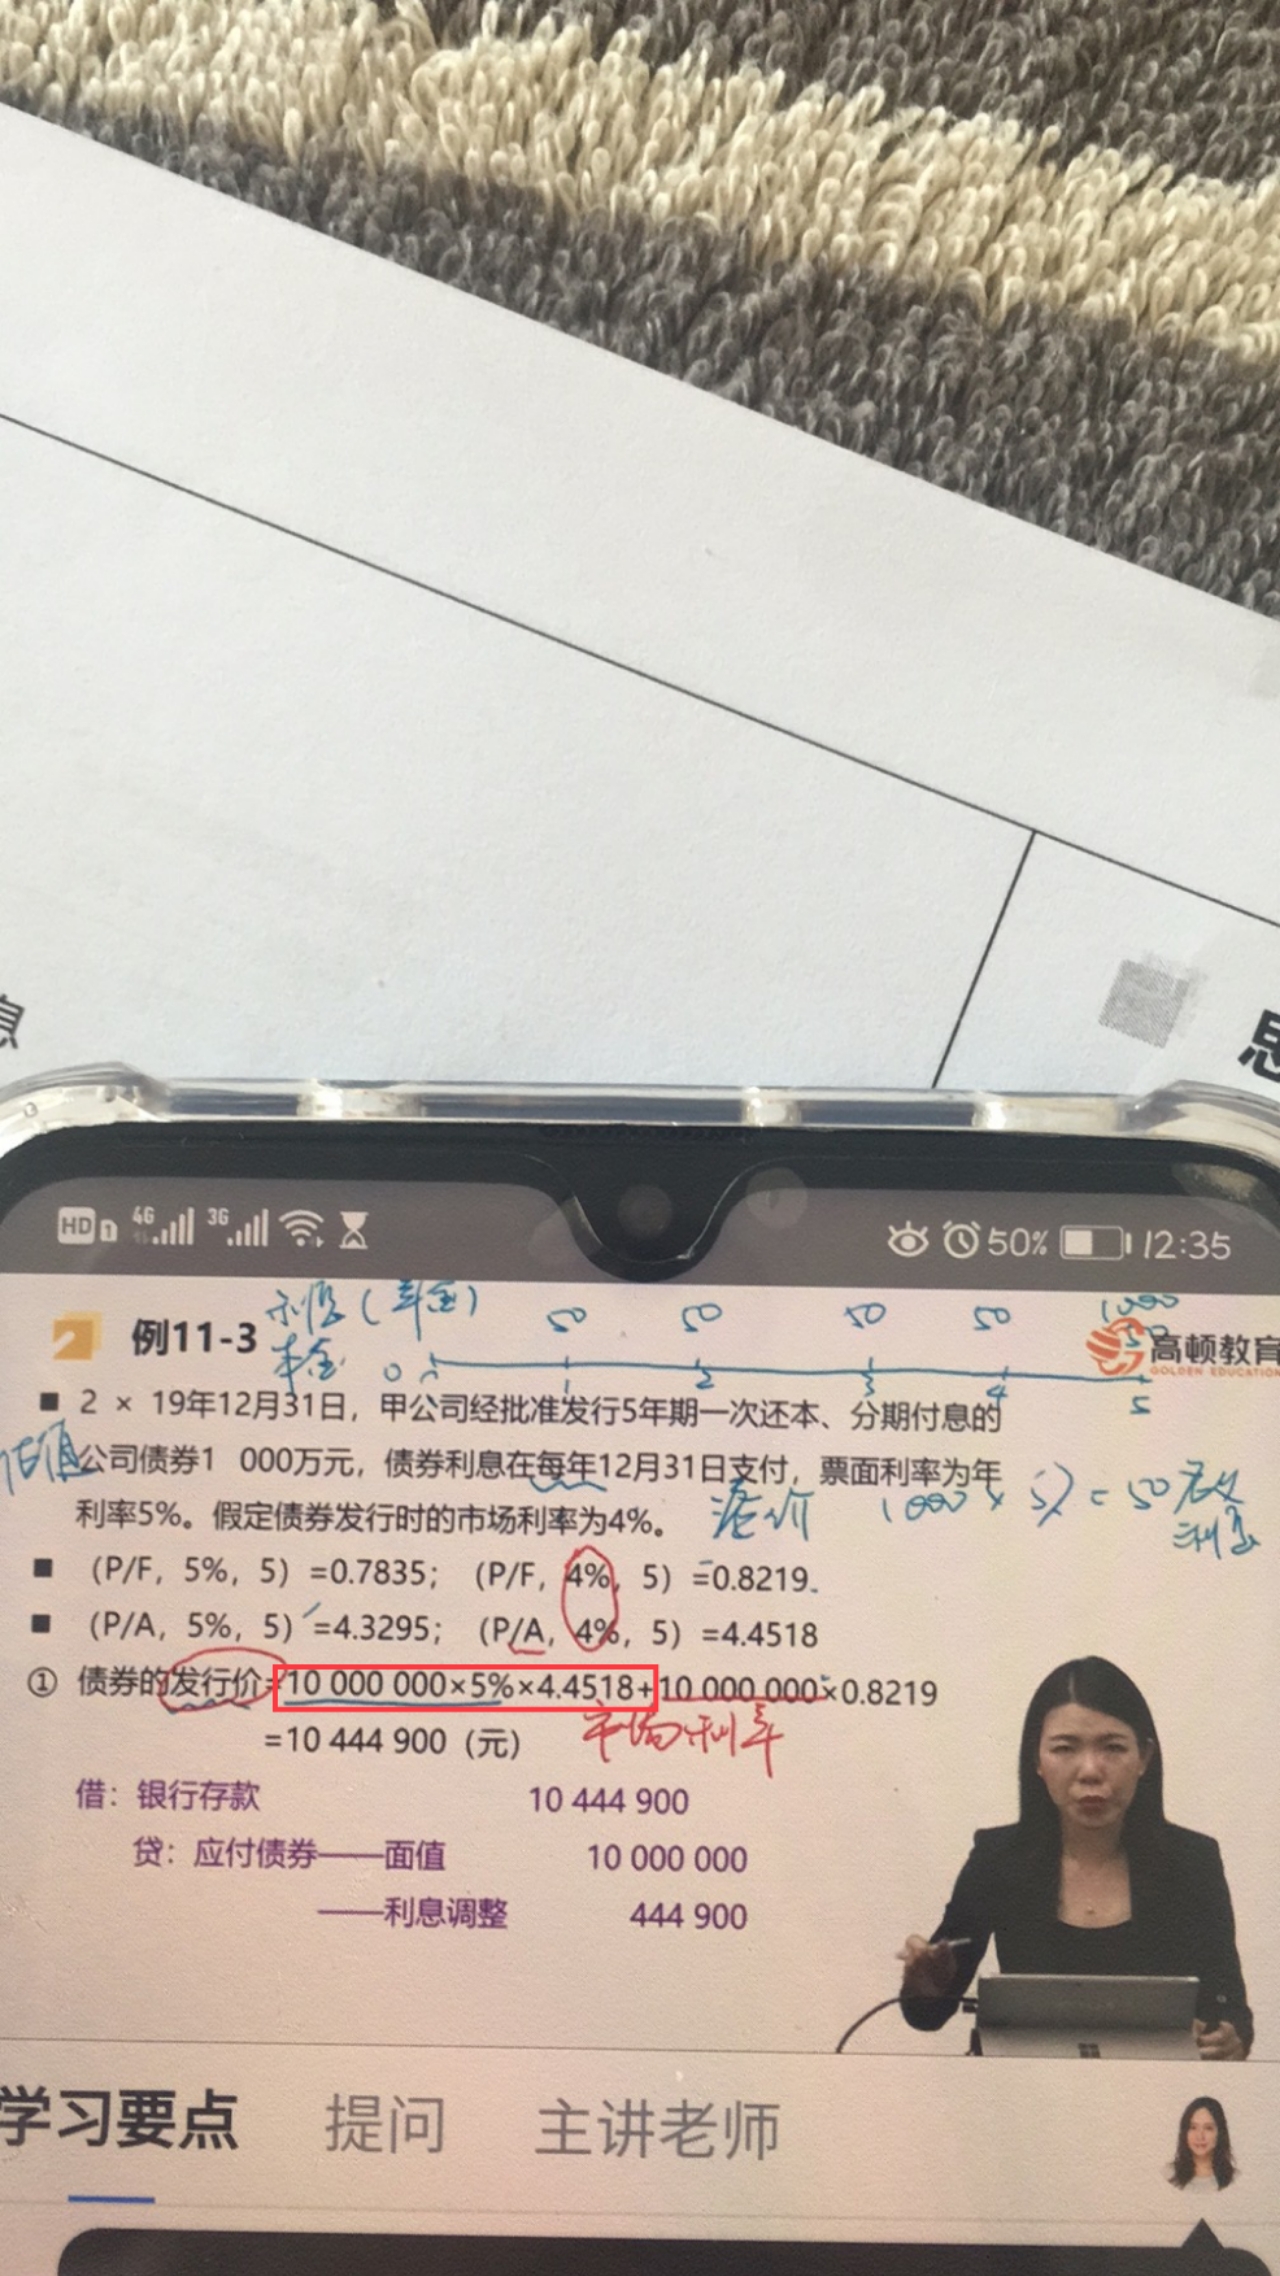 息
思
HD 1 4G 3G 50% 12:35
利息（年金） 50 50 50 50 1000
例11-3 本金 0 1 2 3 4 5 50 高顿教育
GOLDEN EDUCATION
■ 2 × 19年12月31日，甲公司经批准发行5年期一次还本、分期付息的
公司债券1 000万元，债券利息在每年12月31日支付，票面利率为年
利率5%。假定债券发行时的市场利率为4%。 溢价 1000×5%=50万
利息
■ （P/F，5%，5）=0.7835；（P/F，4%，5）=0.8219.
■ （P/A，5%，5）=4.3295；（P/A，4%，5）=4.4518
① 债券的发行价=10 000 000×5%×4.4518+10 000 000×0.8219
=10 444 900（元） 市场利率
借：银行存款 10 444 900
贷：应付债券——面值 10 000 000
——利息调整 444 900
学习要点 提问 主讲老师